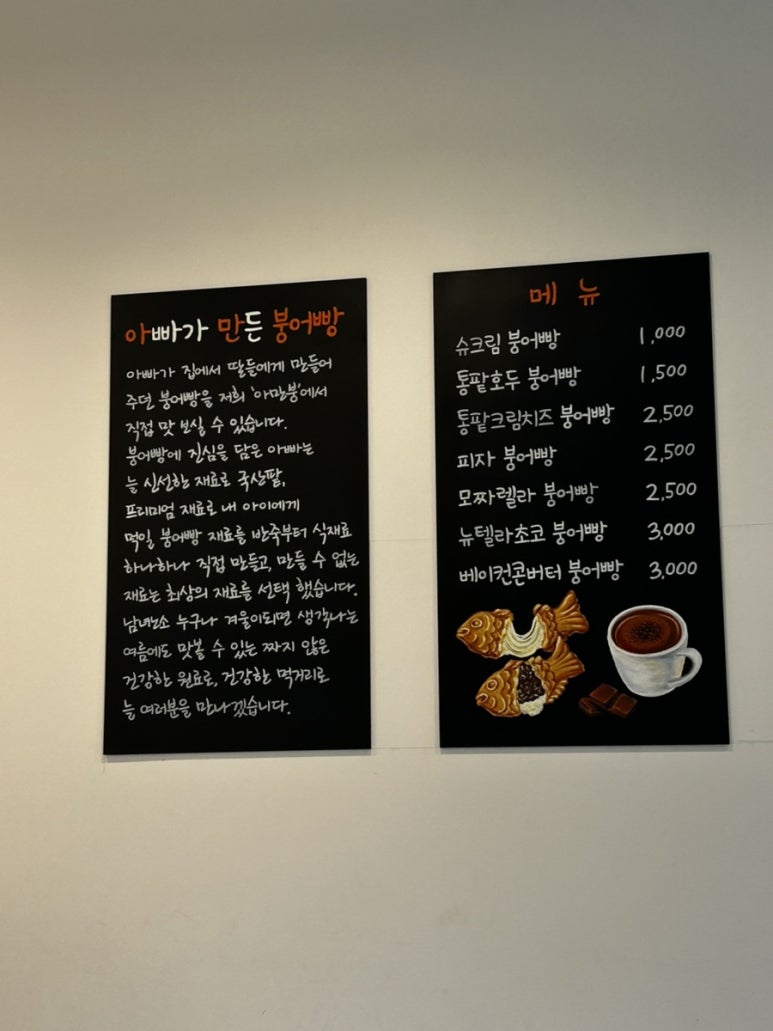 아빠가 만든 붕어빵
아빠가 집에서 딸들에게 만들어
주던 붕어빵을 저희 '아만붕'에서
직접 맛 보실 수 있습니다.
붕어빵에 진심을 담은 아빠는
늘 신선한 재료로 국산팥,
프리미엄 재료로 내 아이에게
먹일 붕어빵 재료를 반죽부터 식재료
하나하나 직접 만들고, 만들 수 없는
재료는 최상의 재료를 선택 했습니다.
남녀노소 누구나 겨울이되면 생각나는
여름에도 맛볼 수 있는 짜지 않은
건강한 원료로, 건강한 먹거리로
늘 여러분을 만나겠습니다.
메뉴
슈크림 붕어빵 1,000
통팥호두 붕어빵 1,500
통팥크림치즈 붕어빵 2,500
피자 붕어빵 2,500
모짜렐라 붕어빵 2,500
뉴텔라초코 붕어빵 3,000
베이컨콘버터 붕어빵 3,000